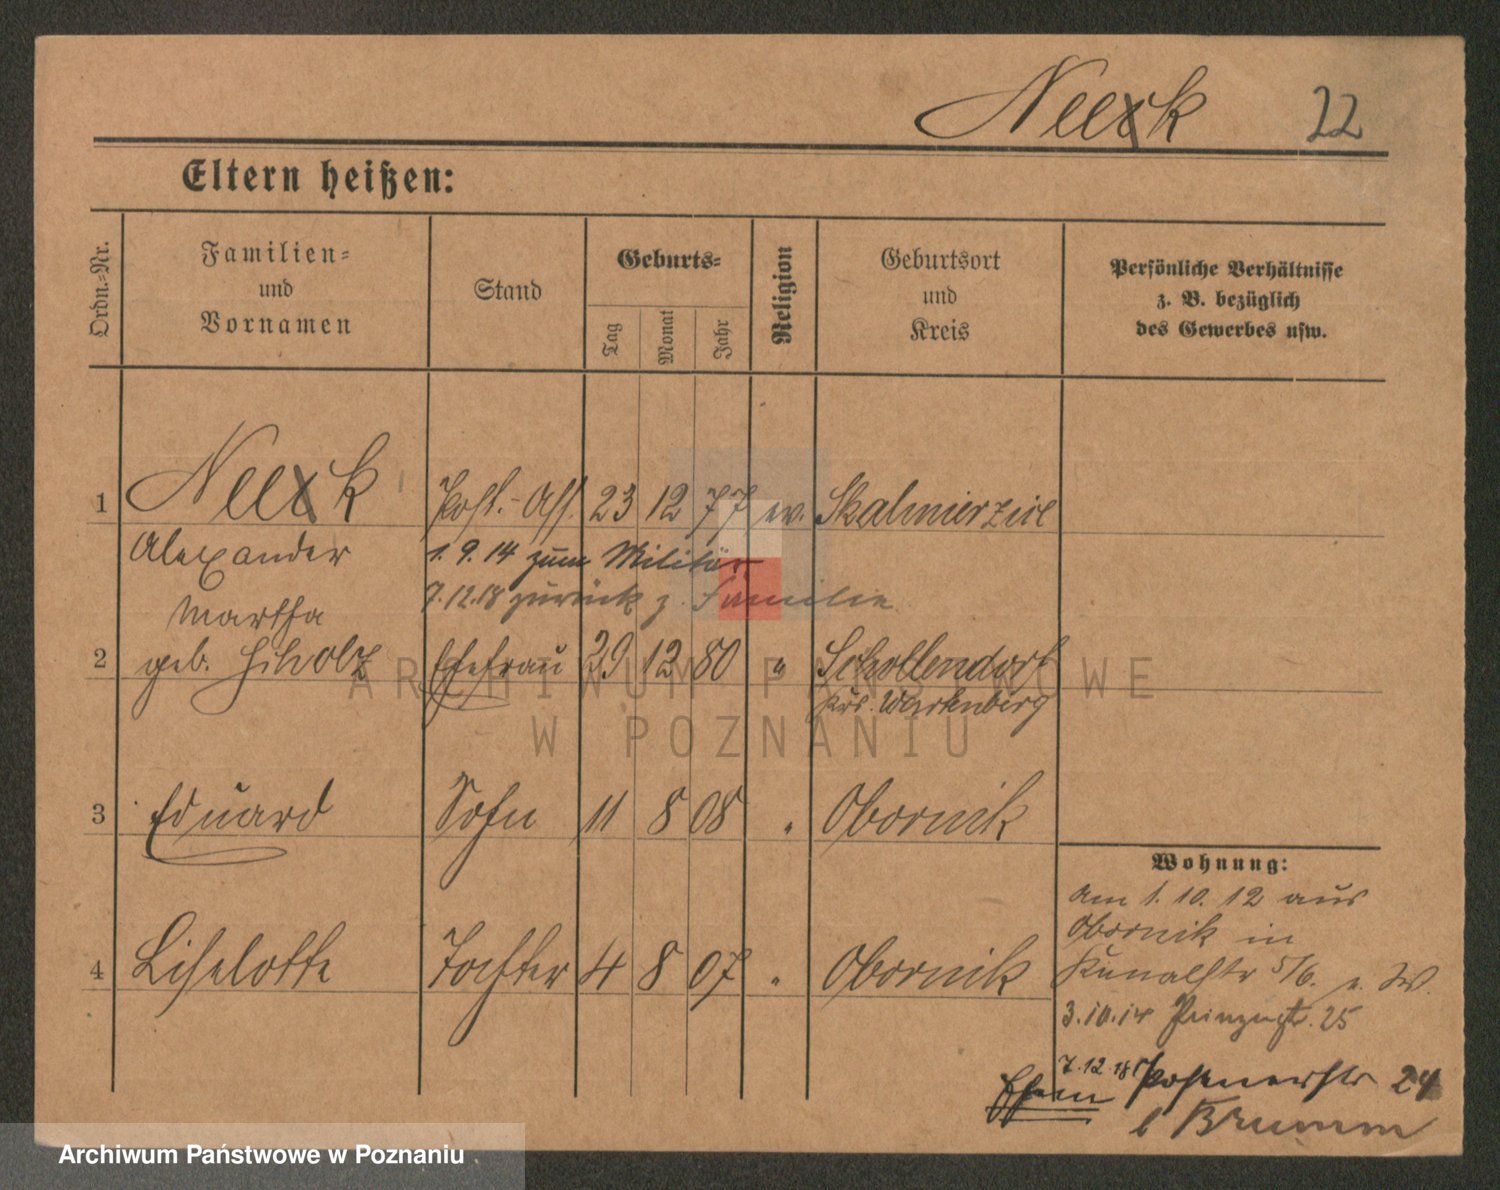 Neek 22
Eltern heißen:
Ordn.-Nr.
Familien-
und
Vornamen
Stand
Geburts-
Tag
Monat
Jahr
Religion
Geburtsort
und
Kreis
Persönliche Verhältnisse
z. B. bezüglich
des Gewerbes usw.
1 Neek Post.-Ass. 23 12 77 ev. Skalmierzice
Alexander 1. 9. 14 zum Militär
7.12.18 zurück z. Familie
Martha
2 geb. Ehefrau 29 12 80 " Schollendorf
Krs. Wartenberg
3 Eduard Sohn 11 8 08 " Obornik
4 Liselotte Tochter 4 8 07 " Obornik
Wohnung:
am 1. 10. 12 aus
Obornik in
Kanalstr 5/6.
3.10.14 Prinzenstr. 25
7.12.18 Posenerstr 24
b Brumm
ARCHIWUM PAŃSTWOWE
W POZNANIU
Archiwum Państwowe w Poznaniu